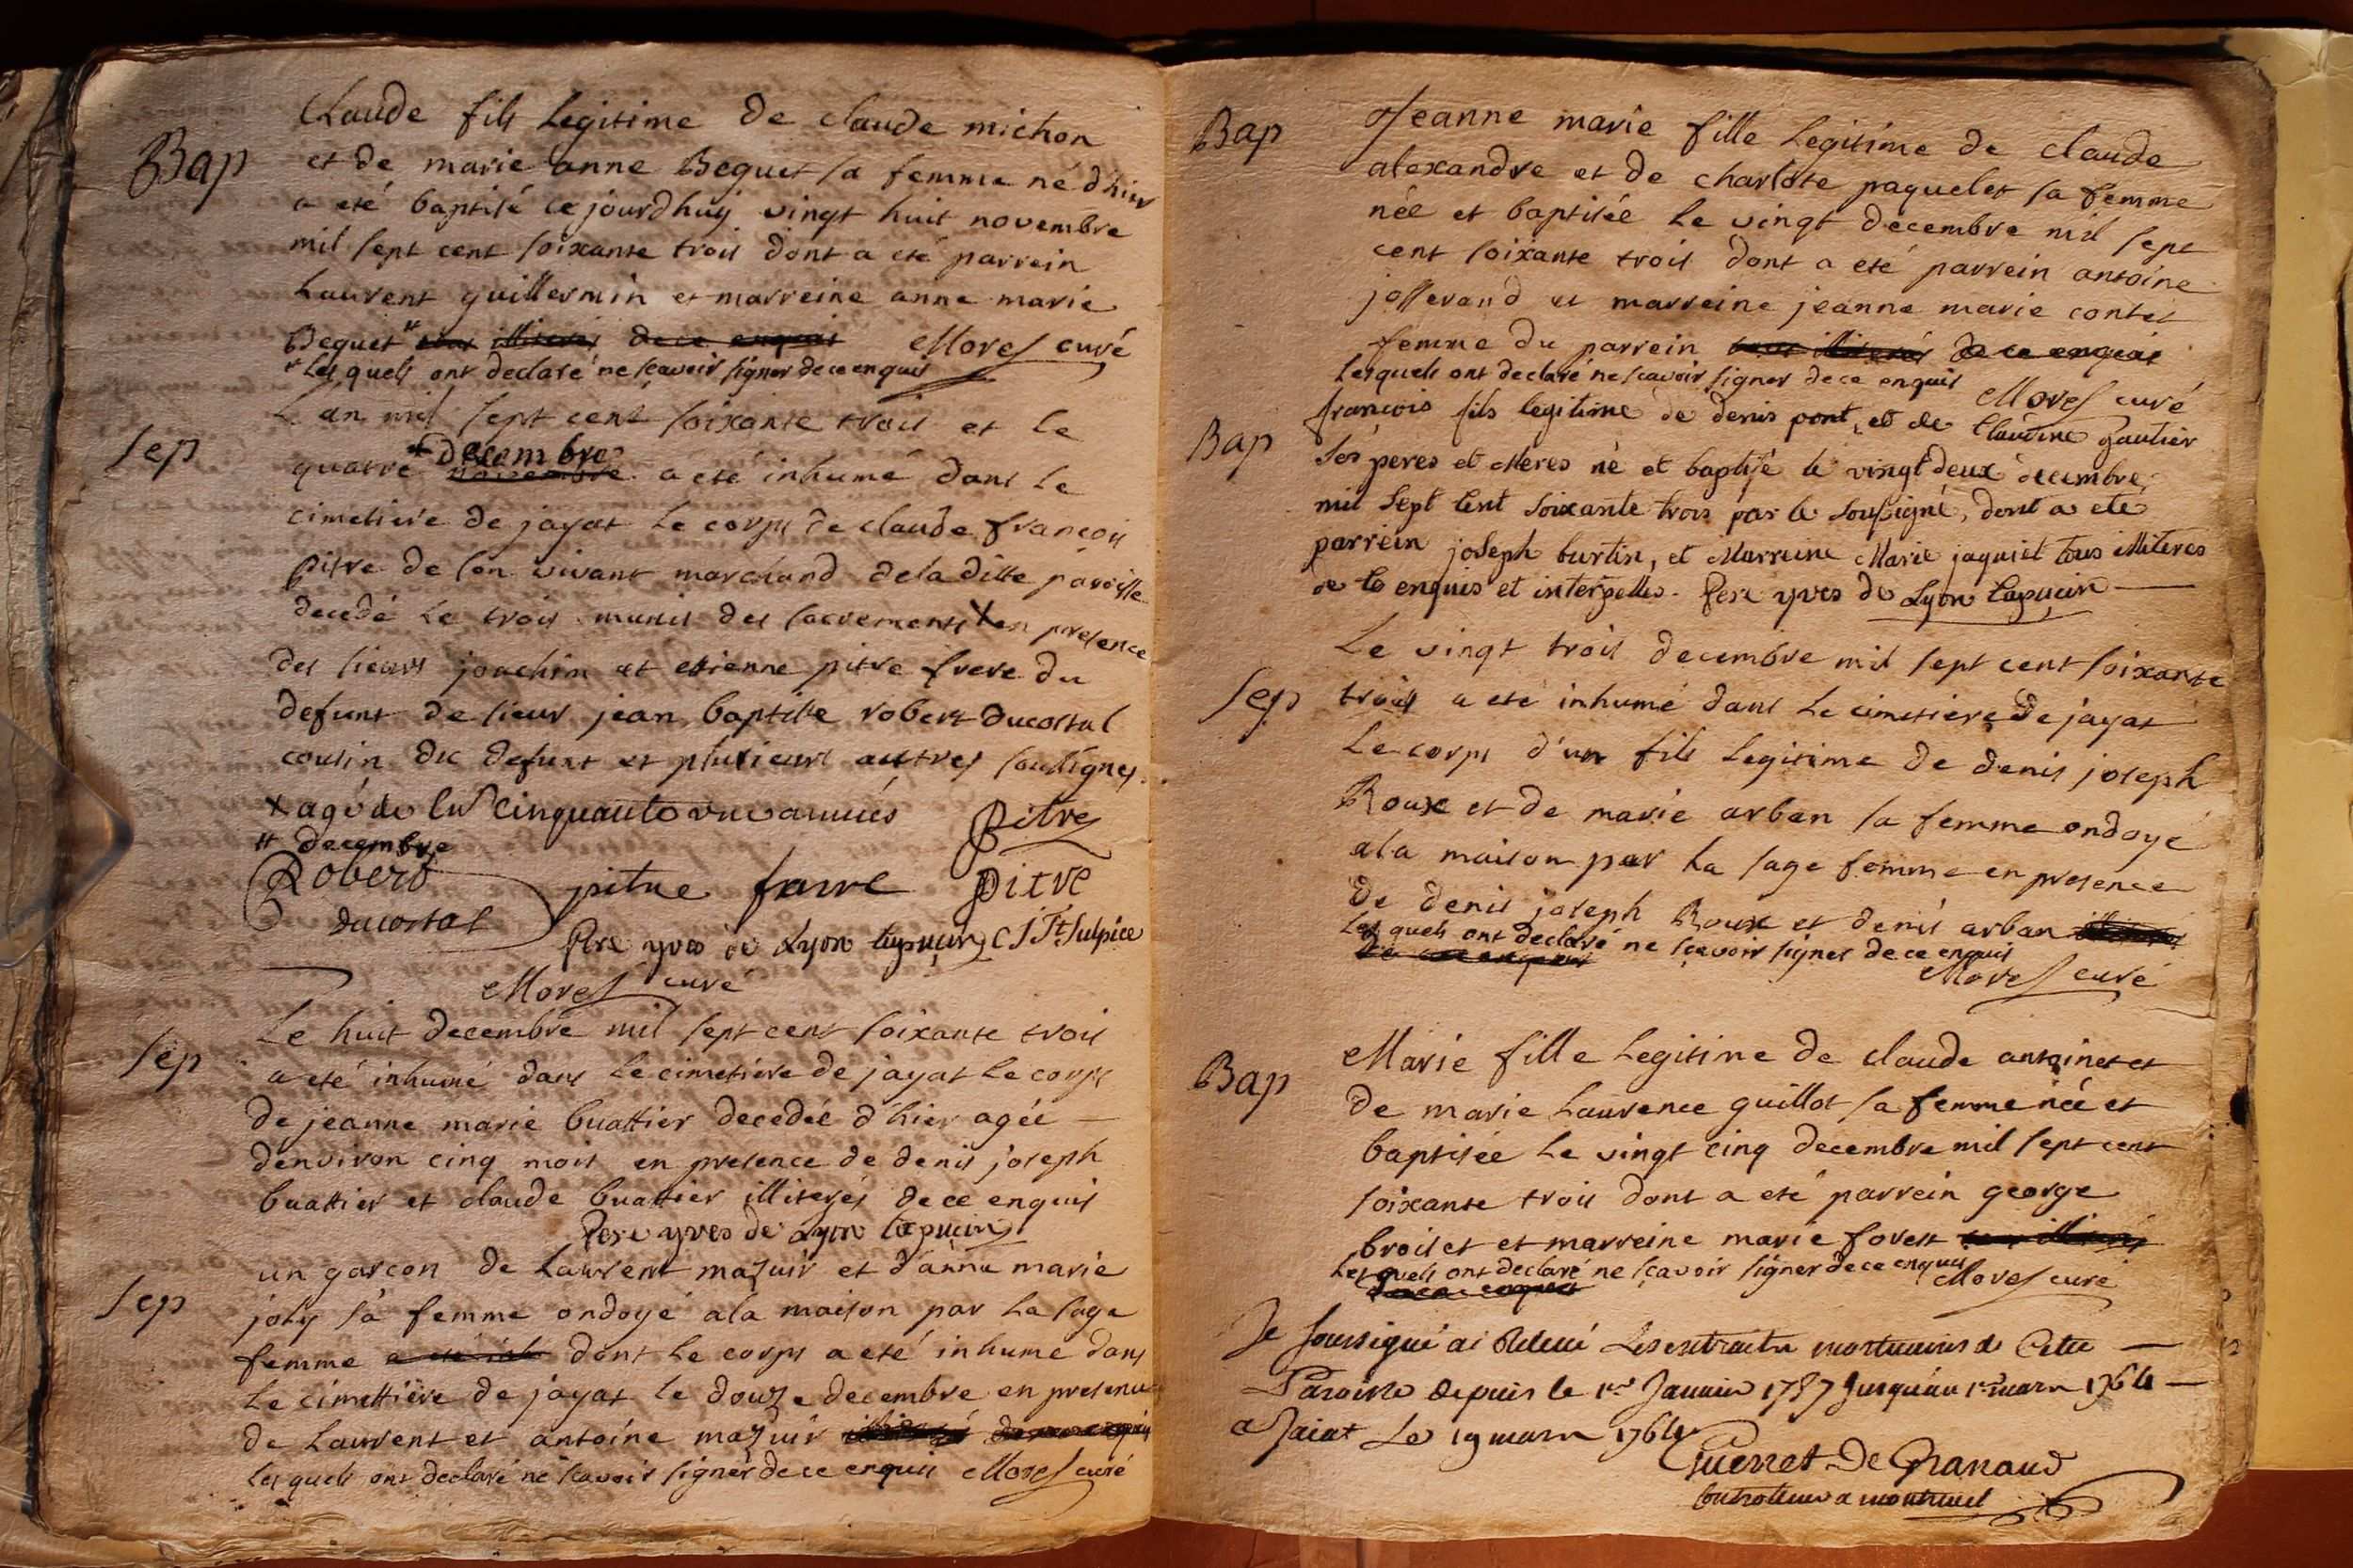 Claude fils legitime de claude michon
Bap
et de marie anne Bequet sa femme né dhier
a eté baptisé ce jourdhuy vingt huit novembre
mil sept cent soixante trois dont a eté parrein
Laurent guillermin et marreine anne marie
Bequet # tous illiterés de ce enquis Morel curé
# Les quels ont declaré ne scavoir signer de ce enquis
Sep
L an mil sept cent soixante trois et le
quatre # decembre novembre a eté inhumé dans le
cimetiere de jayat le corps de claude françois
pitre de son vivant marchand de la ditte paroisse
decedé le trois munis des sacrements X en presence
des sieurs joachim et etienne pitre frere du
defunt de sieur jean baptiste robert ducostal
cousin du defunt et plusieurs autres soussignes
X agé de cinquante une années
# decembre
Pitre
Robert ducostal
pitre farre
pitre
Pere yves de Lyon capucin C J St Sulpice
Morel curé
Sep
Le huit decembre mil sept cent soixante trois
a eté inhumé dans le cimetiere de jayat le corps
de jeanne marie buattier decedée d'hier agée
denviron cinq mois en presence de denis joseph
buattier et claude buattier illiterés de ce enquis
Pere yves de Lyon capucin
Sep
un garcon de Laurent mazuir et d'anne marie
joly sa femme ondoyé a la maison par la sage
femme dont le corps a eté inhumé dans
le cimettiere de jayat le douze decembre en presence
de Laurent et antoine mazuir illiterés de ce enquis
les quels ont declaré ne scavoir signer de ce enquis Morel curé
Bap
Jeanne marie fille Legitime de claude
alexandre et de charlote paquelet sa femme
née et baptisée le vingt decembre mil sept
cent soixante trois dont a eté parrein antoine
josserand et marreine jeanne marie contet
femme du parrein tous illiterés de ce enquis
lesquels ont declaré ne scavoir signer de ce enquis Morel curé
Bap
françois fils legitime de denis pont, et de Claudine gautier
ses peres et meres né et baptisé le vingt deux decembre
mil sept cent soixante trois par le soussigné, dont a eté
parrein joseph burtin, et Marreine Marie jaquiet tous illiteres
de ce enquis et interpellés. Pere yves de Lyon Capucin
Sep
Le vingt trois decembre mil sept cent soixante
trois a eté inhumé dans le cimetiere de jayat
le corps d'un fils legitime de denis joseph
Roux et de marie arban sa femme ondoyé
a la maison par la sage femme en presence
de denis joseph Roux et denis arban illiterés
Les quels ont declaré ne scavoir signer de ce enquis
de ce enquis
Morel curé
Bap
Marie fille Legitime de claude antoinet et
de marie Laurence guillot sa femme née et
baptisée le vingt cinq decembre mil sept cent
soixante trois dont a eté parrein george
broiset et marreine marie forest tous illiterés
Les quels ont declaré ne scavoir signer de ce enquis
de ce enquis Morel curé
Je soussigné ai Relevé Les extraits mortuaires de Cette
Paroisse depuis le 1er Janvier 1757 Jusqu'au 1er mars 1764
a Jaiat Le 19 mars 1764
Guerret De Granaud
Controlleur a montrevel